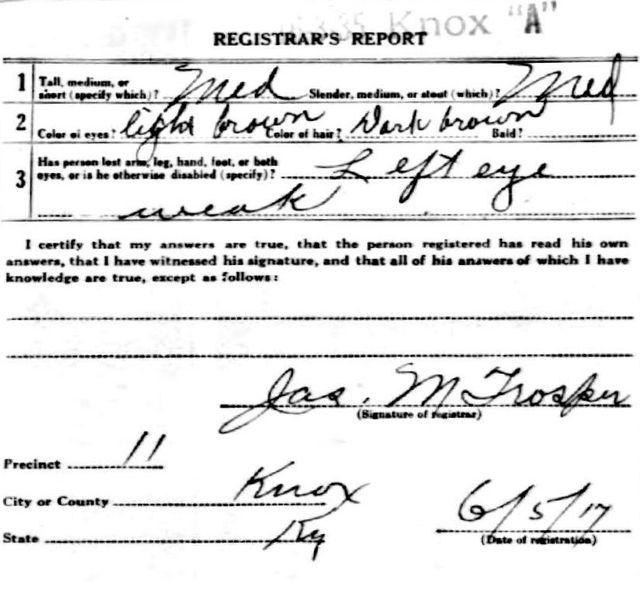 Knox "A"
REGISTRAR'S REPORT
1 Tall, medium, or short (specify which)? Med Slender, medium, or stout (which)? Med
2 Color of eyes? light brown Color of hair? Dark brown Bald?
3 Has person lost arm, leg, hand, foot, or both
eyes, or is he otherwise disabled (specify)? Left eye
weak
I certify that my answers are true, that the person registered has read his own
answers, that I have witnessed his signature, and that all of his answers of which I have
knowledge are true, except as follows:
Jas. M Trosper
(Signature of registrar)
Precinct 11
City or County Knox
State Ky 6/5/17
(Date of registration)